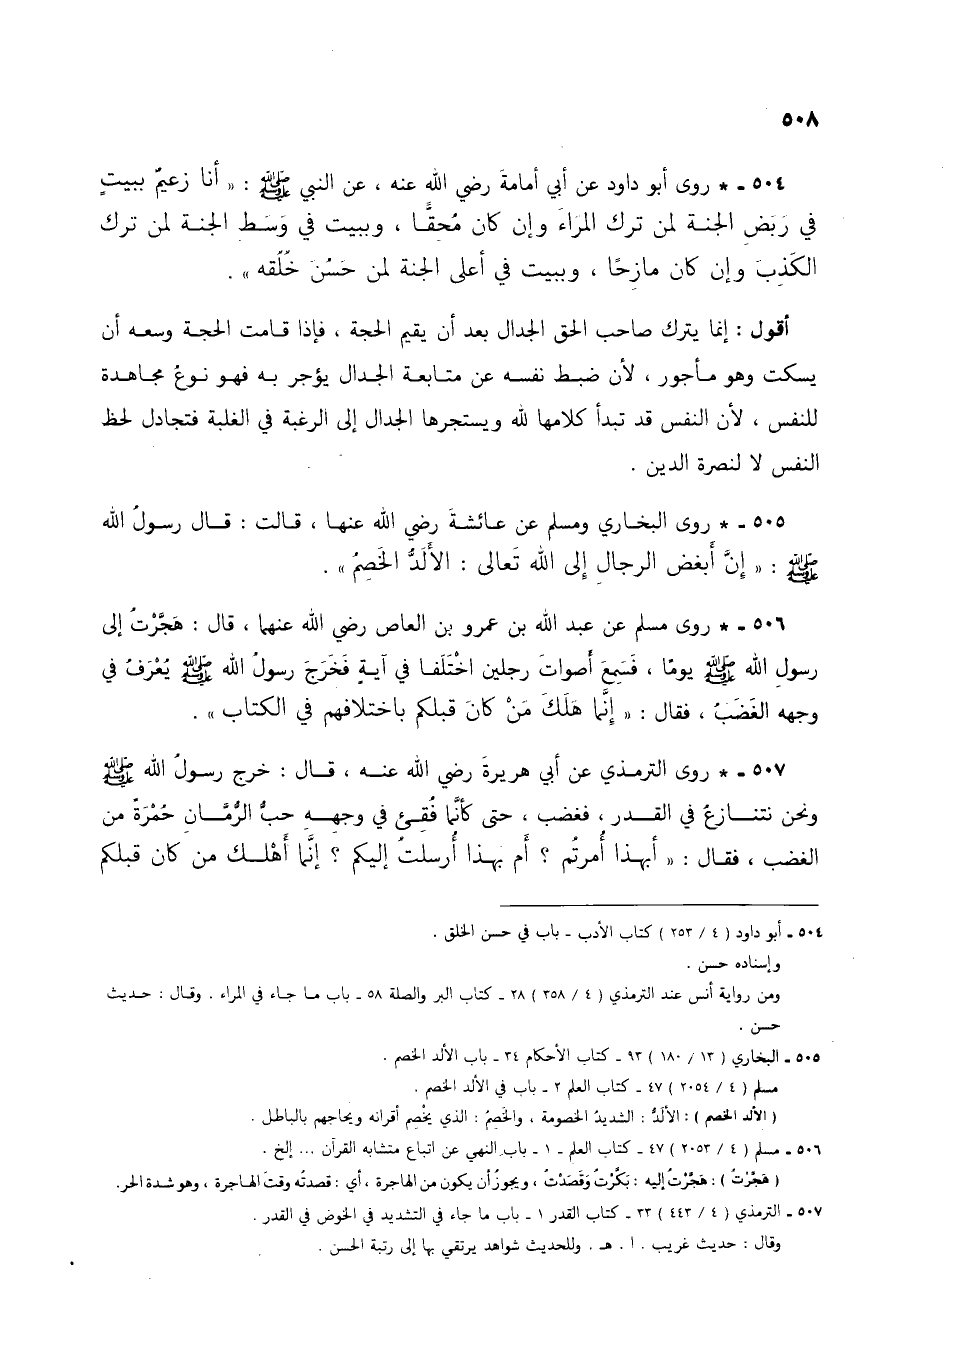 ٥٠٨
٥٠٤ ـ * روى أبو داود عن أبي أمامةَ رضي الله عنه ، عن النبي ﷺ : « أنا زعيمٌ ببيتٍ
في رَبَض الجنـة لمن ترك المِرَاءَ وإن كان مُحِقًّـا ، وببيت في وَسَـط الجنـة لمن ترك
الكَذِبَ وإن كان مازحًا ، وببيت في أعلى الجنة لمن حَسُنَ خُلُقه » .
أقول : إنما يترك صاحب الحق الجدال بعد أن يقيم الحجة ، فإذا قـامت الحجـة وسعه أن
يسكت وهو مـأجور ، لأن ضبـط نفسـه عن متـابعـة الجـدال يؤجر بـه فهـو نـوعُ مجـاهـدة
للنفس ، لأن النفس قد تبدأ كلامها لله ويستجرها الجدال إلى الرغبة في الغلبة فتجادل لحظ
النفس لا لنصرة الدين .
٥٠٥ ـ * روى البخـاري ومسلم عن عـائشـةَ رضي الله عنهـا ، قـالت : قـال رسـولُ الله
ﷺ : « إنَّ أَبغض الرجال إلى الله تَعالى : الأَلَدُّ الخَصِمُ » .
٥٠٦ ـ * روى مسلم عن عبد الله بن عمرو بن العاص رضي الله عنهما ، قال : هَجَّرْتُ إلى
رسول الله ﷺ يومًا ، فَسَمِعَ أَصواتَ رجلين اخْتَلَفـا في آيـةٍ فَخَرَجَ رسولُ الله ﷺ يُعْرَفُ في
وجهه الغَضَبُ ، فقال : « إِنَّما هَلَكَ مَنْ كانَ قبلكم باختلافهم في الكتاب » .
٥٠٧ ـ * روى الترمـذي عن أبي هريرةَ رضي الله عنـه ، قـال : خرج رسـولُ الله ﷺ
ونحن نتنـازعُ في القـدر ، فغضب ، حتى كأنَّما فُقِئ في وجهـه حبُّ الرُّمَّـان حُمْرَةً من
الغضب ، فقـال : « أَبهـذا أُمرتُم ؟ أَم بهـذا أُرسلتُ إليكم ؟ إنَّما أَهْلـك من كان قبلكم
٥٠٤ ـ أبو داود ( ٤ / ٢٥٣ ) كتاب الأدب ـ باب في حسن الخلق .
وإسناده حسن .
ومن رواية أنس عند الترمذي ( ٤ / ٣٥٨ ) ٢٨ ـ كتاب البر والصلة ٥٨ ـ باب مـا جاء في المراء . وقـال : حـديث
حسن .
٥٠٥ ـ البخاري ( ١٣ / ١٨٠ ) ٩٣ ـ كتاب الأحكام ٣٤ ـ باب الألد الخصم .
مسلم ( ٤ / ٢٠٥٤ ) ٤٧ ـ كتاب العلم ٢ ـ باب في الألد الخصم .
( الألد الخصم ) : الأَلَدُّ : الشديدُ الخصومة ، والخَصِمُ : الذي يخْصِم أقرانه ويحاجهم بالباطل .
٥٠٦ ـ مسلم ( ٤ / ٢٠٥٣ ) ٤٧ ـ كتاب العلم ـ ١ ـ باب النهي عن اتباع متشابه القرآن ... إلخ .
( هَجَّرْتُ ) : هَجَّرْتُ إليه : بَكَّرْتُ وَقَصَدْتُ ، ويجوزُ أن يكون من الهاجرة ، أي : قصدتُه وقتَ الهـاجرة ، وهو شدة الحر.
٥٠٧ ـ الترمذي ( ٤ / ٤٤٣ ) ٣٣ ـ كتاب القدر ١ ـ باب ما جاء في التشديد في الخوض في القدر .
وقال : حديث غريب . ا . هـ . وللحديث شواهد يرتقي بها إلى رتبة الحسن .